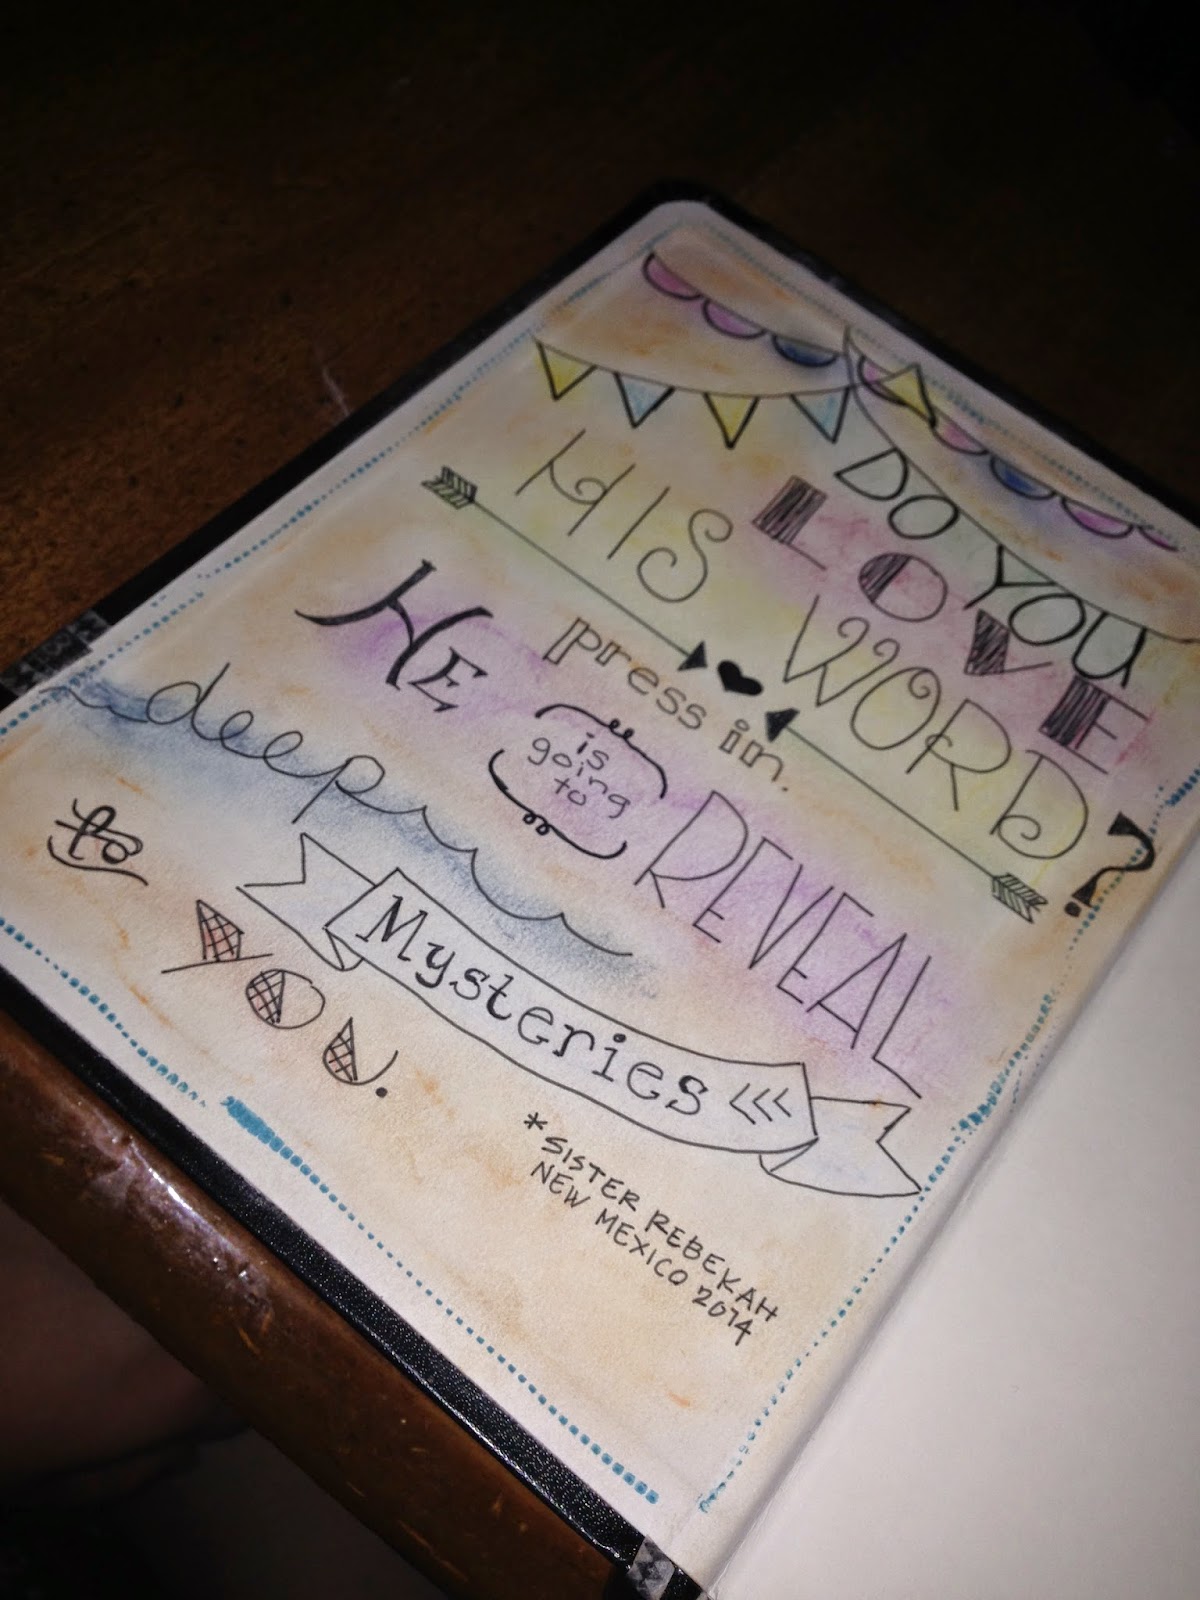 DO YOU
LOVE
HIS WORD?
press in.
HE
is
going
to
REVEAL
deep
Mysteries
to
YOU.
*SISTER REBEKAH
NEW MEXICO 2014